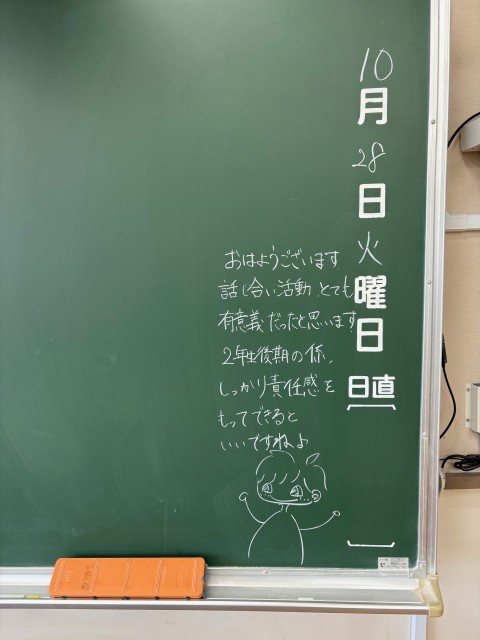 10月28日火曜日
日直
おはようございます
話し合い活動、とても
有意義だったと思います
2年生後期の係、
しっかり責任感を
もってできると
いいですねよ